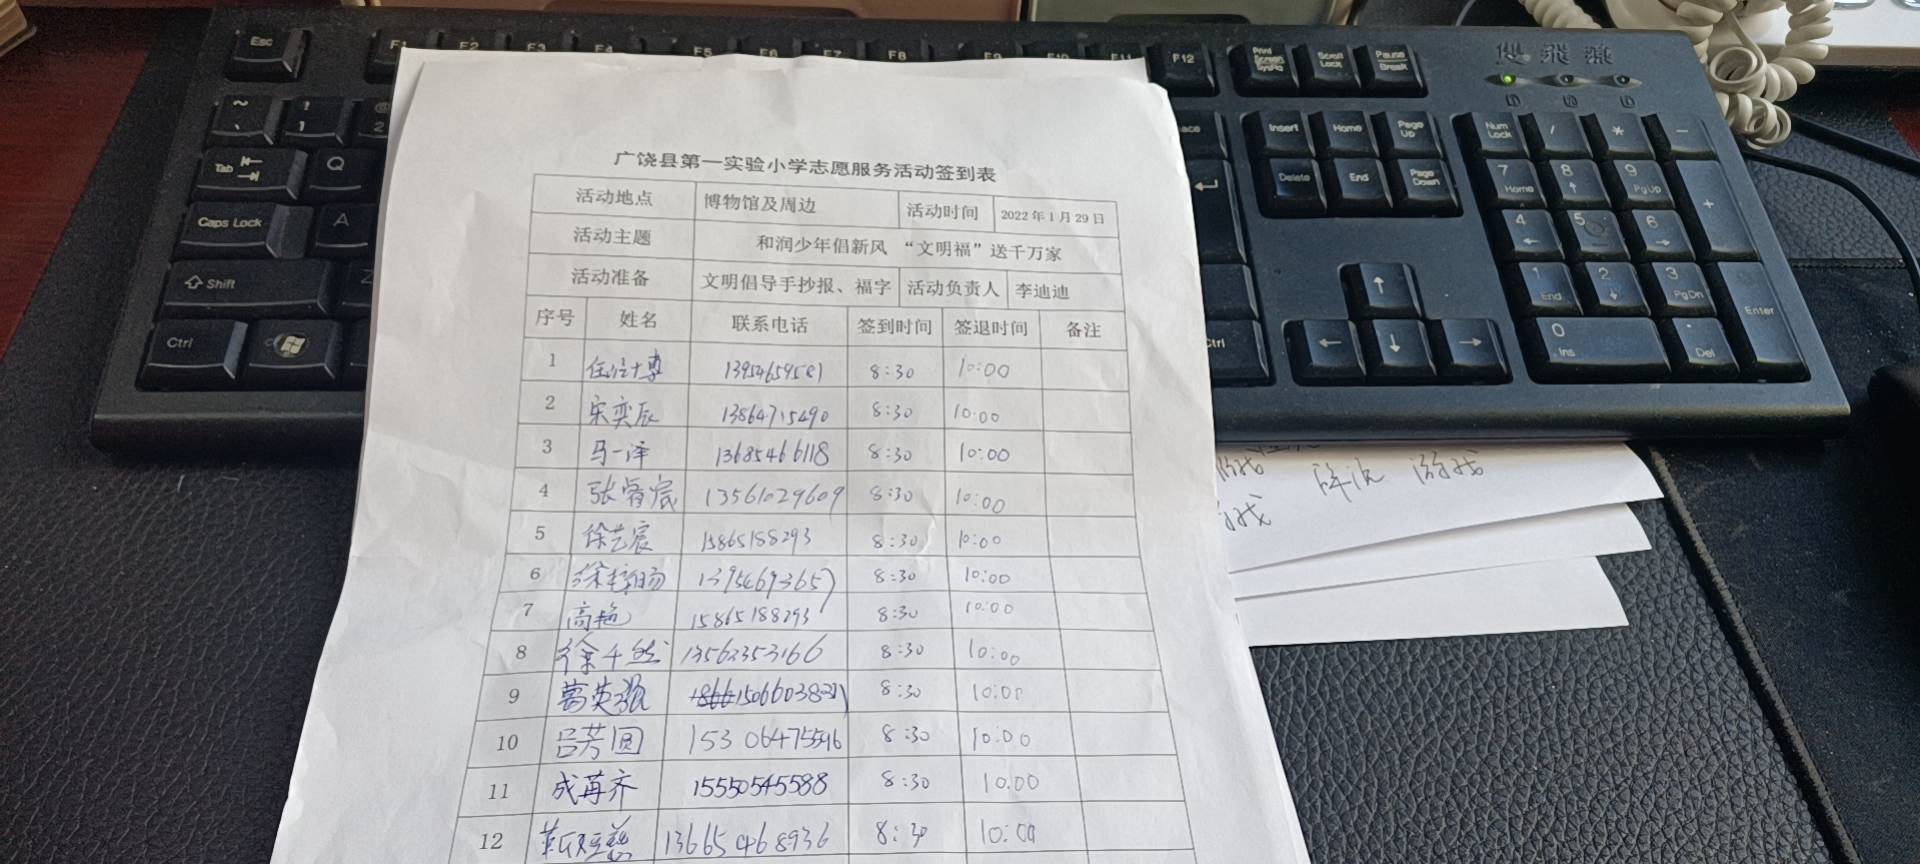 Esc F1 F2 F3 F4 F5 F6 F7 F8 F9 F10 F11 F12 Print Screen SysRq Scroll Lock Pause Break
~ ! 1 2 Insert Home Page Up Num Lock / * -
Tab Q Delete End Page Down 7 Home 8 9 PgUp +
Caps Lock A 4 5 6
Shift Z 1 End 2 3 PgDn Enter
Ctrl Ctrl 0 Ins . Del
广饶县第一实验小学志愿服务活动签到表
活动地点 博物馆及周边 活动时间 2022年1月29日
活动主题 和润少年倡新风 “文明福”送千万家
活动准备 文明倡导手抄报、福字 活动负责人 李迪迪
序号 姓名 联系电话 签到时间 签退时间 备注
1 8:30 10:00
2 宋奕辰 13864715490 8:30 10:00
3 马一泽 13685466118 8:30 10:00
4 张睿宸 13561029609 8:30 10:00
5 徐艺宸 15865188293 8:30 10:00
6 13954693657 8:30 10:00
7 高艳 15865188293 8:30 10:00
8 徐千然 13562353166 8:30 10:00
9 葛英强 8:30 10:00
10 吕芳圆 15306475546 8:30 10:00
11 成苒齐 15550545588 8:30 10:00
12 13665468936 8:30 10:00
游戏